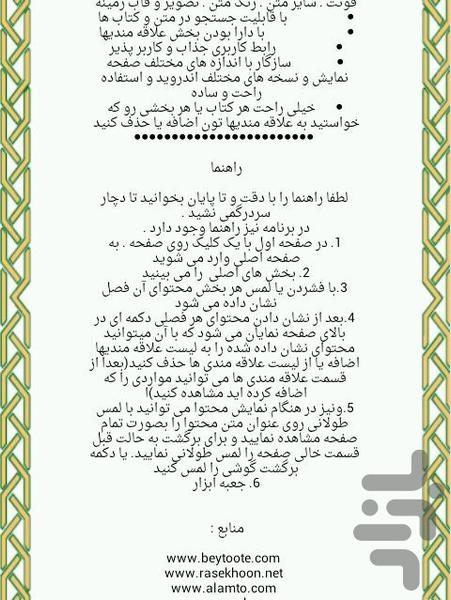 فونت . سایز متن . رنگ متن . تصویر و قاب زمینه
• با قابلیت جستجو در متن و کتاب ها
• با دارا بودن بخش علاقه مندیها
• رابط کاربری جذاب و کاربر پذیر
• سازگار با اندازه های مختلف صفحه
نمایش و نسخه های مختلف اندروید و استفاده
راحت و ساده
• خیلی راحت هر کتاب یا هر بخشی رو که
خواستید به علاقه مندیها تون اضافه یا حذف کنید
••••••••••••••••••••••••
راهنما
لطفا راهنما را با دقت و تا پایان بخوانید تا دچار
سردرگمی نشید .
در برنامه نیز راهنما وجود دارد .
1. در صفحه اول با یک کلیک روی صفحه . به
صفحه اصلی وارد می شوید
2. بخش های اصلی را می بینید
3.با فشردن یا لمس هر بخش محتوای آن فصل
نشان داده می شود
4.بعد از نشان دادن محتوای هر فصلی دکمه ای در
بالای صفحه نمایان می شود که با آن میتوانید
محتوای نشان داده شده را به لیست علاقه مندیها
اضافه یا از لیست علاقه مندی ها حذف کنید(بعدا از
قسمت علاقه مندی ها می توانید مواردی را که
اضافه کرده اید مشاهده کنید)ا
5.ونیز در هنگام نمایش محتوا می توانید با لمس
طولانی روی عنوان متن محتوا را بصورت تمام
صفحه مشاهده نمایید و برای برگشت به حالت قبل
قسمت خالی صفحه را لمس طولانی نمایید. یا دکمه
برگشت گوشی را لمس کنید
6. جعبه ابزار
منابع :
www.beytoote.com
www.rasekhoon.net
www.alamto.com
بازار